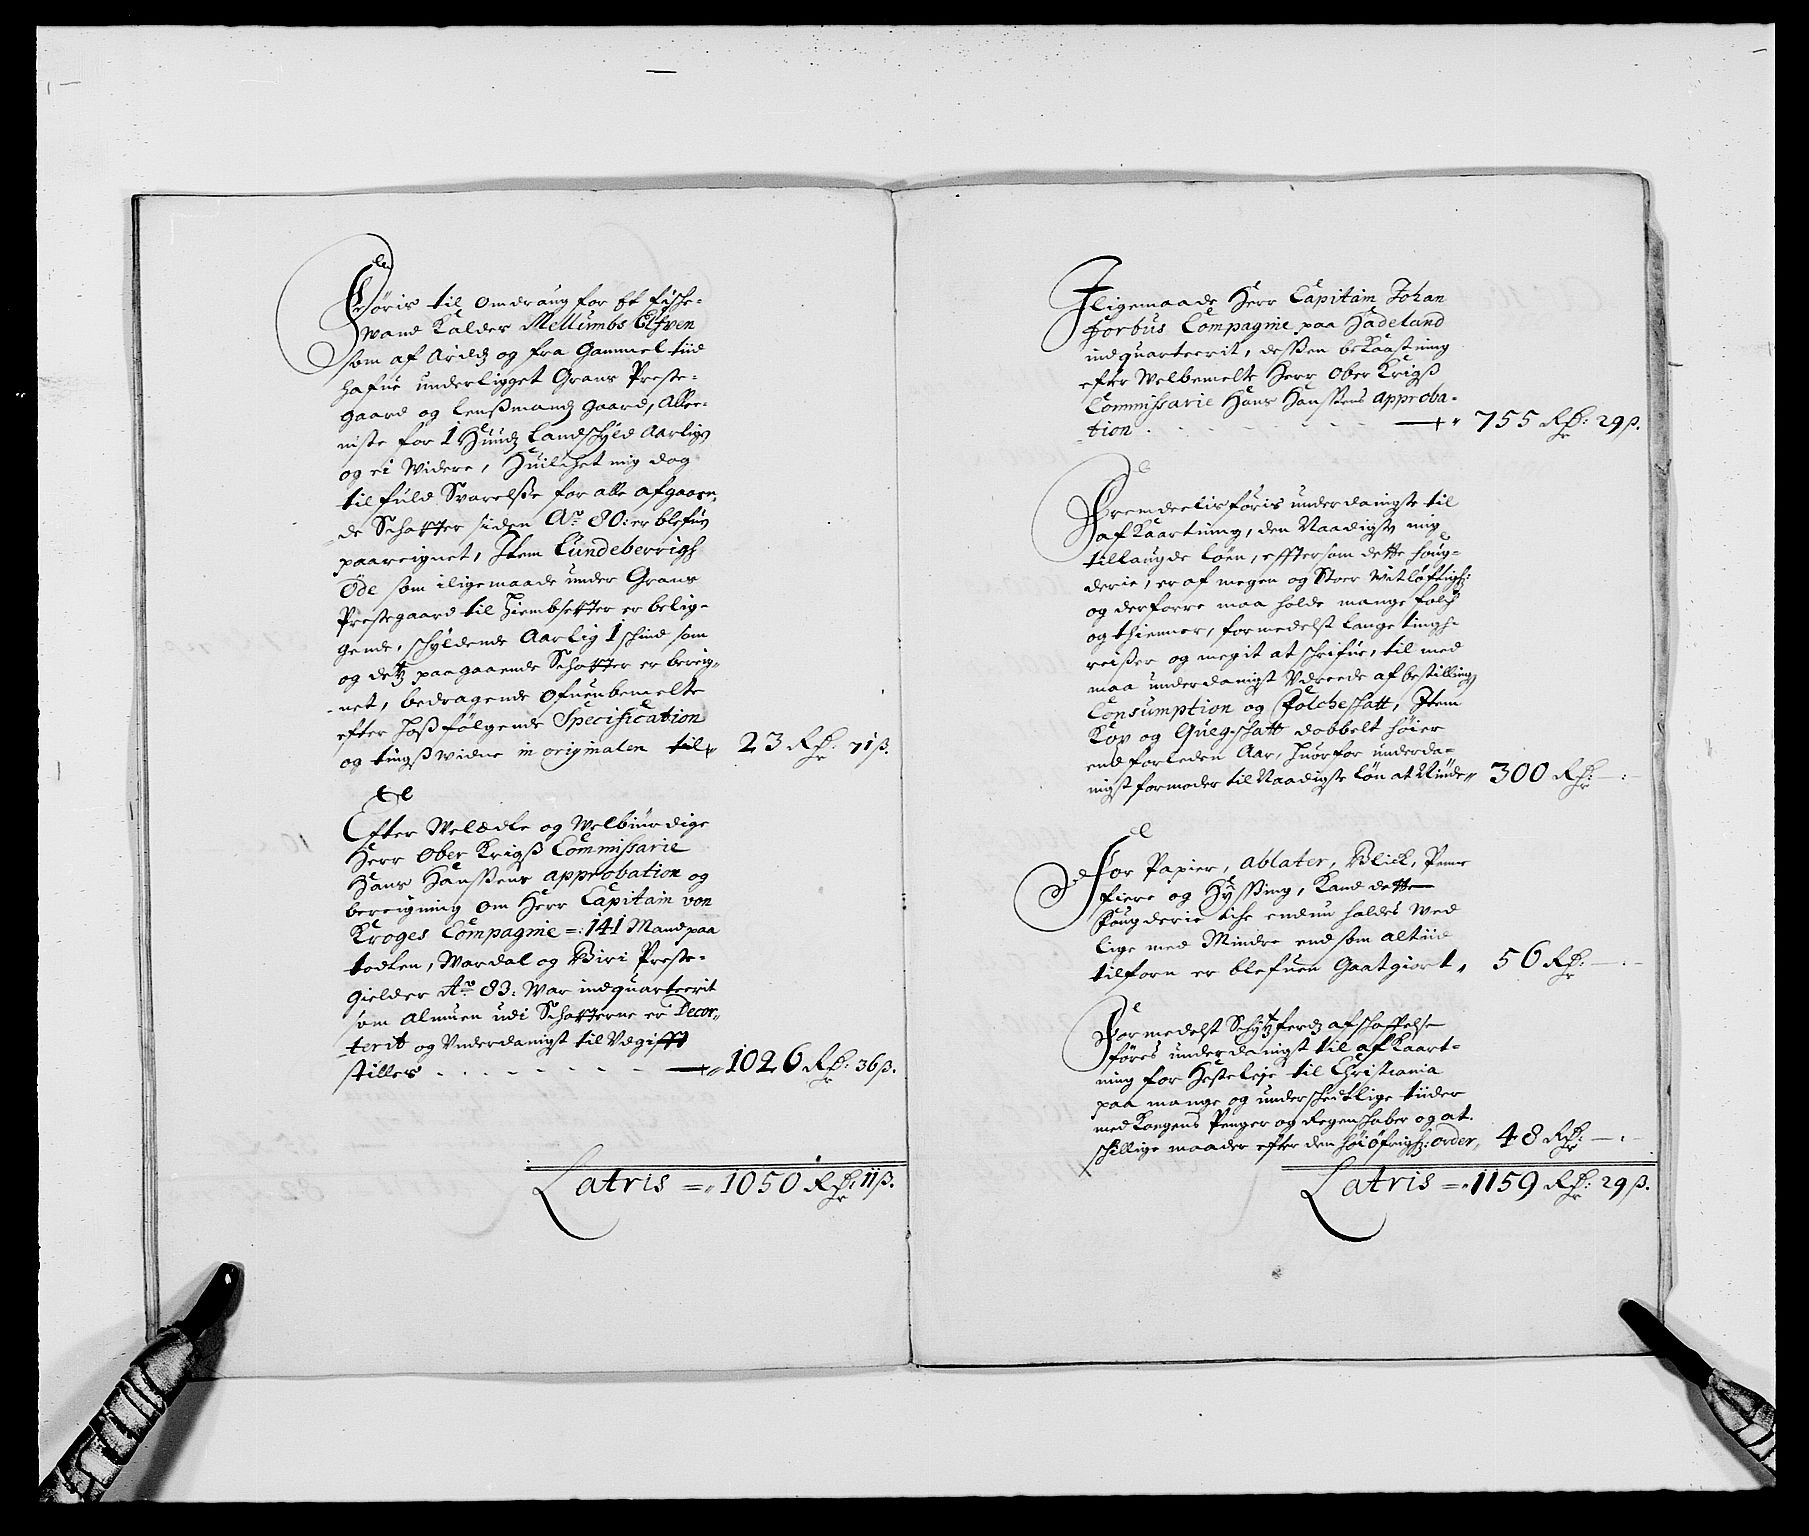 Føris til omdraug for Et fische-
wand Kalder Mellumbs Elfven
som af Arildz og fra Gammel tiid
hafue underligget Grans Preste-
gaard og Lenßmandz gaard, Alle-
niste for 1 Hundz Landschyld Aarligen
og ei Widere, Huilchet mig dog
til fuld Svarelße for alle afgaaen-
de Schatter siden Ao 80: er blefuen
paareignet, Item Lundeberrigs
Öde som iligemaade under Grans
Prestegaard til Hiembsetter er belig-
gende, schyldende Aarlig 1 schind som
og detz paagaaende Schatter er bereig-
net, bedragende ofuenbemelte
efter Hoßfölgende Specification
og tingß widne in originalen til 23 Rdr: 71 ß.
Efter Welædle og Welbiurdige
Herr Ober Krigß Commissarie
Hans Hanßens approbation og
bereigning om Herr Capitain von
Kroges Compagnie =: 141 Mand paa
todten, Wardal og Biri Preste-
gielder Ao 83: War indquarterit
som Almuen udi Schatterne er Decor-
terit og Underdanigst til Udgifft
stilles 1026 Rdr: 36 ß.
Latris = 1050 Rdr: 11 ß.
Iligemaade Herr Capitain Johan
Forbus Compagnie paa Hadeland
indquarteerit, deßsen bekaastning
efter Welbemelte Herr Ober Krigß
Commissarie Hans Hanßens approba-
tion 755 Rdr: 29 ß.
Fremdeelis føris underdanigste til
afkaartning, den Naadigst mig
tillaugde Løen, efftersom dette foug-
derie, er af megen og Stoer Witløftigh:
og derforre maa holde mange folch
og thienner, formedelst Lange tingh-
reißer og megit at schrifue, til med
maa underdanigst Udreede af bestilling
Consumption og Folcheschatt, Item
Kop og Quegschatt dobbelt høier
end forleden Aar, huorfor underda-
nigst formoder til Naadigste løn at Niude 300 Rdr:
For Papier, ablater, Blick, Penne
fiere og Hyßing, Kand dette
Fougderie iche endnu holdes wed
lige med Mindre end som altiid
tilforn er blefuen Gaatgiort 56 Rdr:
Formedelst Schytzferdz afschaffelse
føres underdanigst til afkaart-
ning for Hesteleje til Christiania
paa mange og underschedtlige tiider
med Kongens Penger og Regenschaber og at
schillige maader efter den høiøfrigh: order 48 Rdr:
Latris = 1159 Rdr: 29 ß.